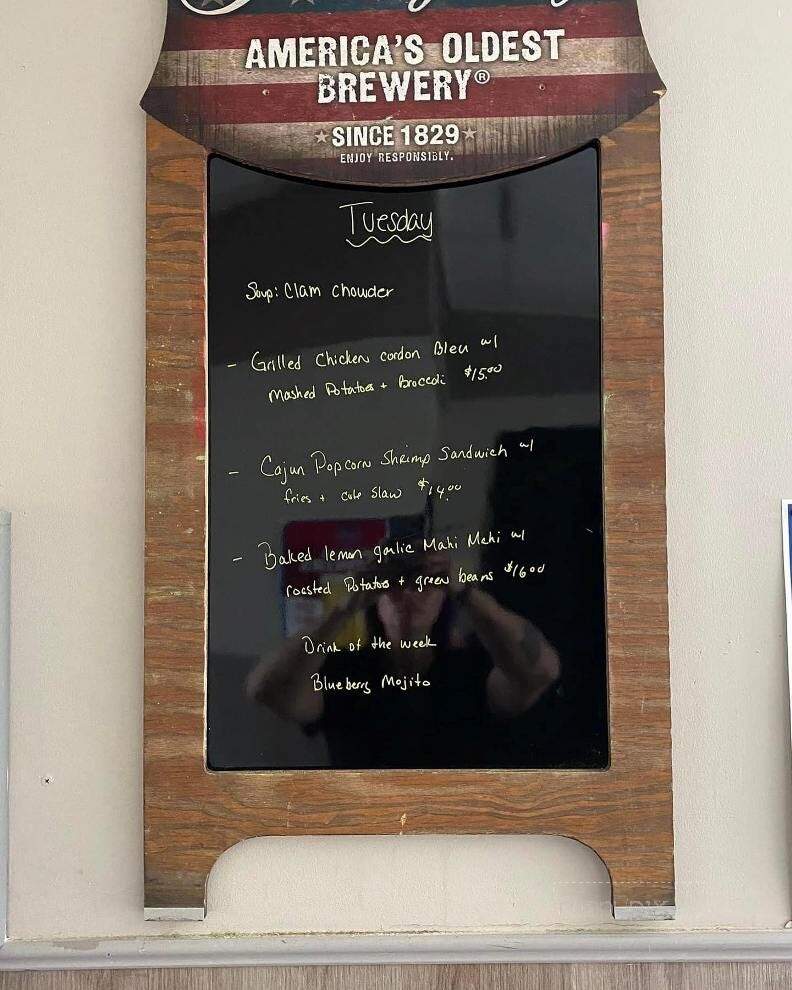 AMERICA'S OLDEST
BREWERY®
SINCE 1829
ENJOY RESPONSIBLY.
Tuesday
Soup: Clam Chowder
- Grilled Chicken Cordon Bleu w/
Mashed Potatoes + Broccoli $15.00
- Cajun Popcorn Shrimp Sandwich w/
fries + Cole Slaw $14.00
- Baked lemon garlic Mahi Mahi w/
roasted Potatoes + green beans $16.00
Drink of the week
Blueberry Mojito